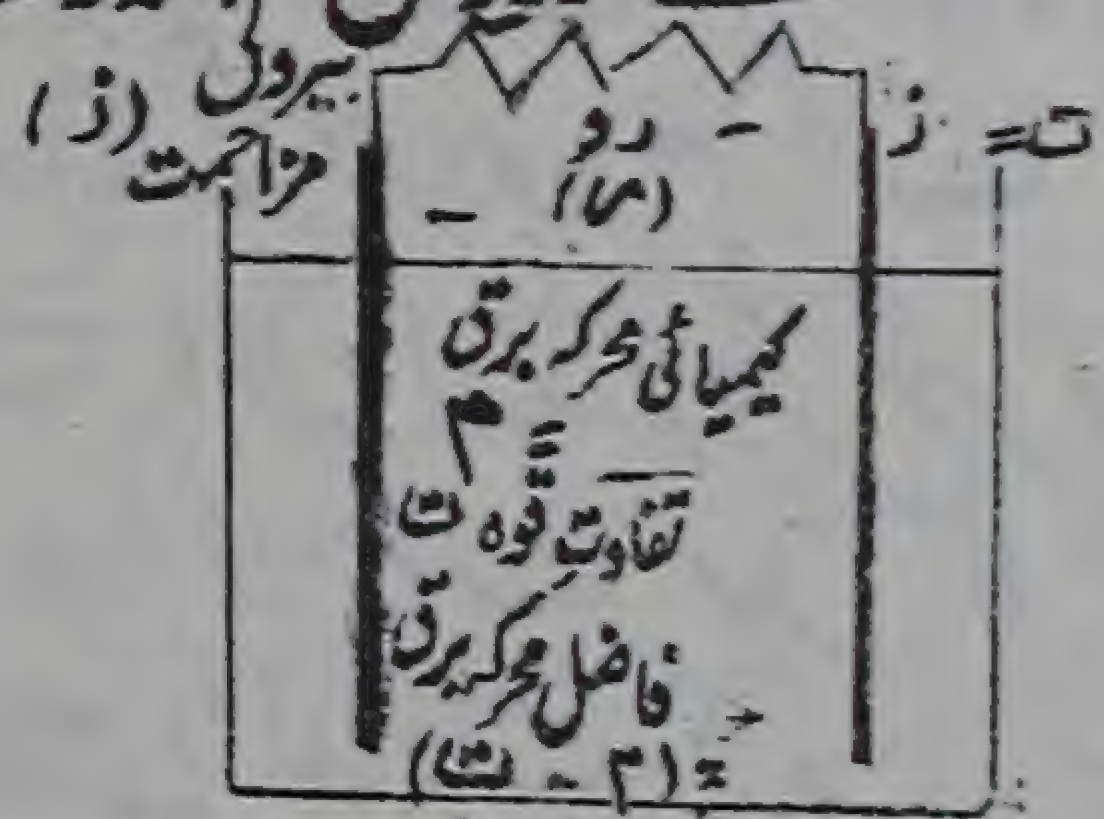 بیرونی
مزاحمت (ذ)
ت = ذ
رو
(س)
کیمیائی محرکہ برق
= م
تفاوتِ قوہ ت
فاضل محرکہ برق
= (م - ت)